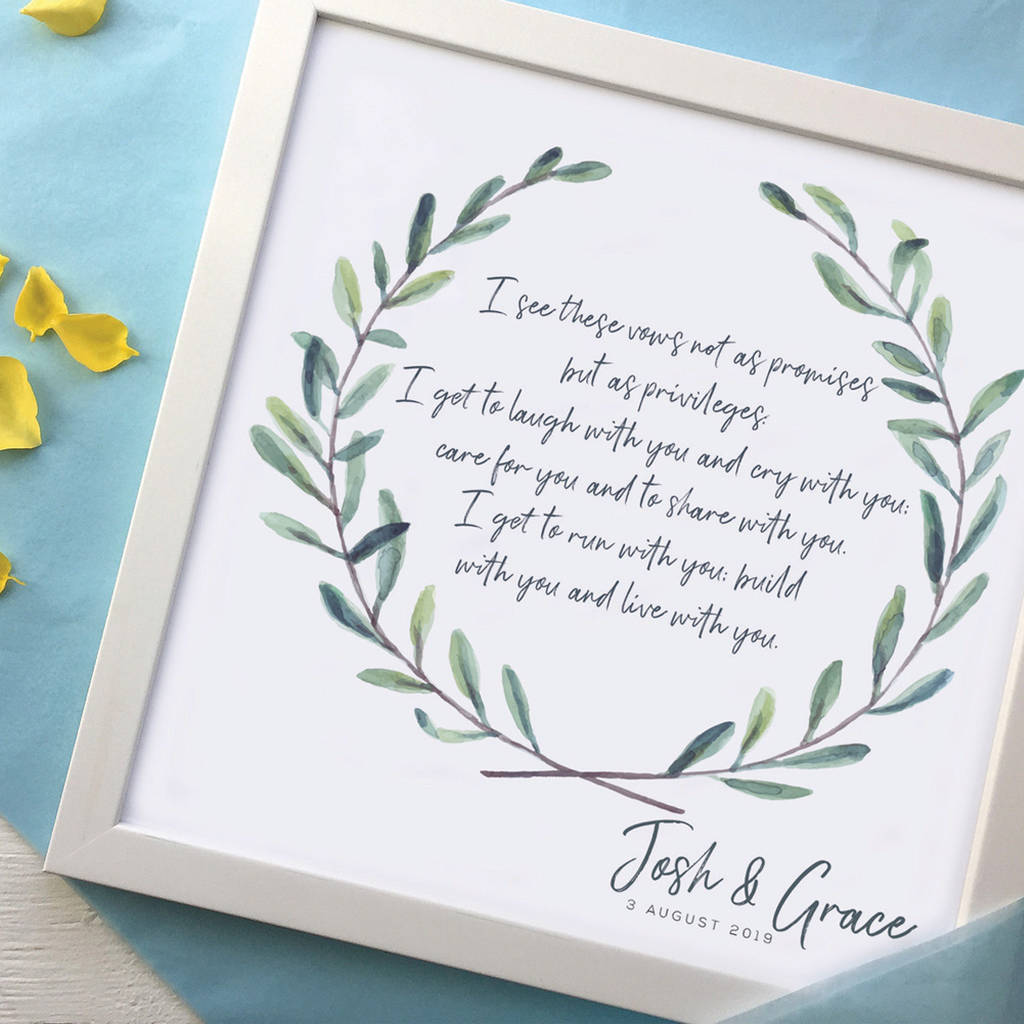 I see these vows not as promises
but as privileges:
I get to laugh with you and cry with you;
care for you and to share with you.
I get to run with you; build
with you and live with you.
Josh & Grace
3 AUGUST 2019